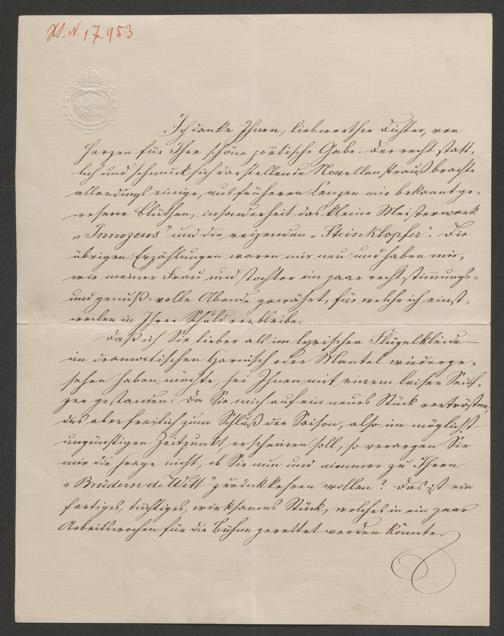 H. N. 17.953
Ich danke Ihnen, liebwerther Dichter, von
Herzen für Ihre schöne poëtische Gabe. Der recht statt-
lich und schmuck sich darstellende Novellenstrauß brachte
allerdings einige, aus früheren Lenzen mir bekannt ge-
wesene Blüthen, insonderheit das kleine Meisterwerk
„Innozens" und die reizenden „Steinklopfer". Die
übrigen Erzählungen waren mir neu und haben mir,
wie meiner Frau und Tochter ein paar recht stimmungs-
und genuß-volle Abende gewährt, für welche ich einst-
weilen in Ihrer Schuld verbleibe.
Daß ich Sie lieber als im lyrischen Flügelkleide
im dramatischen Harnisch oder Mantel wiederge-
sehen haben möchte, sei Ihnen mit einem leisen Seuf-
zer gestanden. Da Sie mich auf ein neues Stück vertrösten,
das aber freilich zum Schluß der Saison, also im möglichst
ungünstigen Zeitpunkt, erscheinen soll, so verargen Sie
mir die Frage nicht, ob Sie nun und nimmer zu Ihren
„Brüdern de Witt" zurückkehren wollen? Das ist ein
fertiges, tüchtiges, wirksames Stück, welches in ein paar
Arbeitswochen für die Bühne gerettet werden könnte.